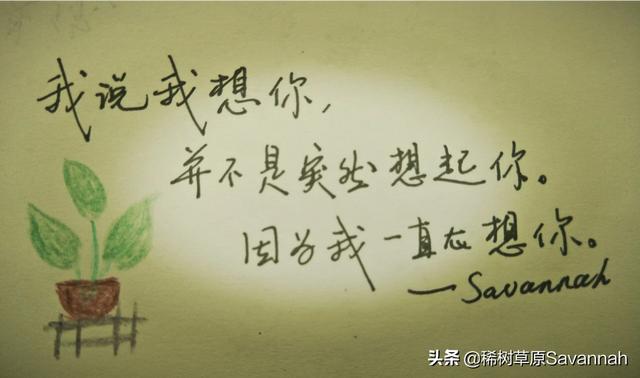 我说我想你，
并不是突然想起你。
因为我一直在想你。
—Savannah
头条 @稀树草原Savannah